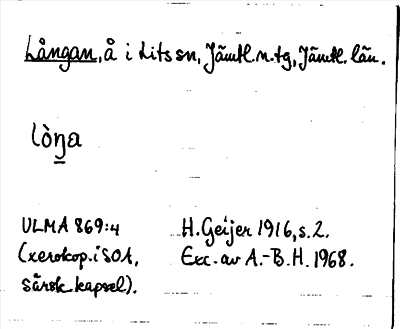 Långan, å i Lits sn, Jämtl. n. tg, Jämtl. län.
lòŋa
ULMA 869:4
(xerokop. i SOA,
särsk. kapsel).
H. Geijer 1916, s. 2.
Exc. av A.-B. H. 1968.